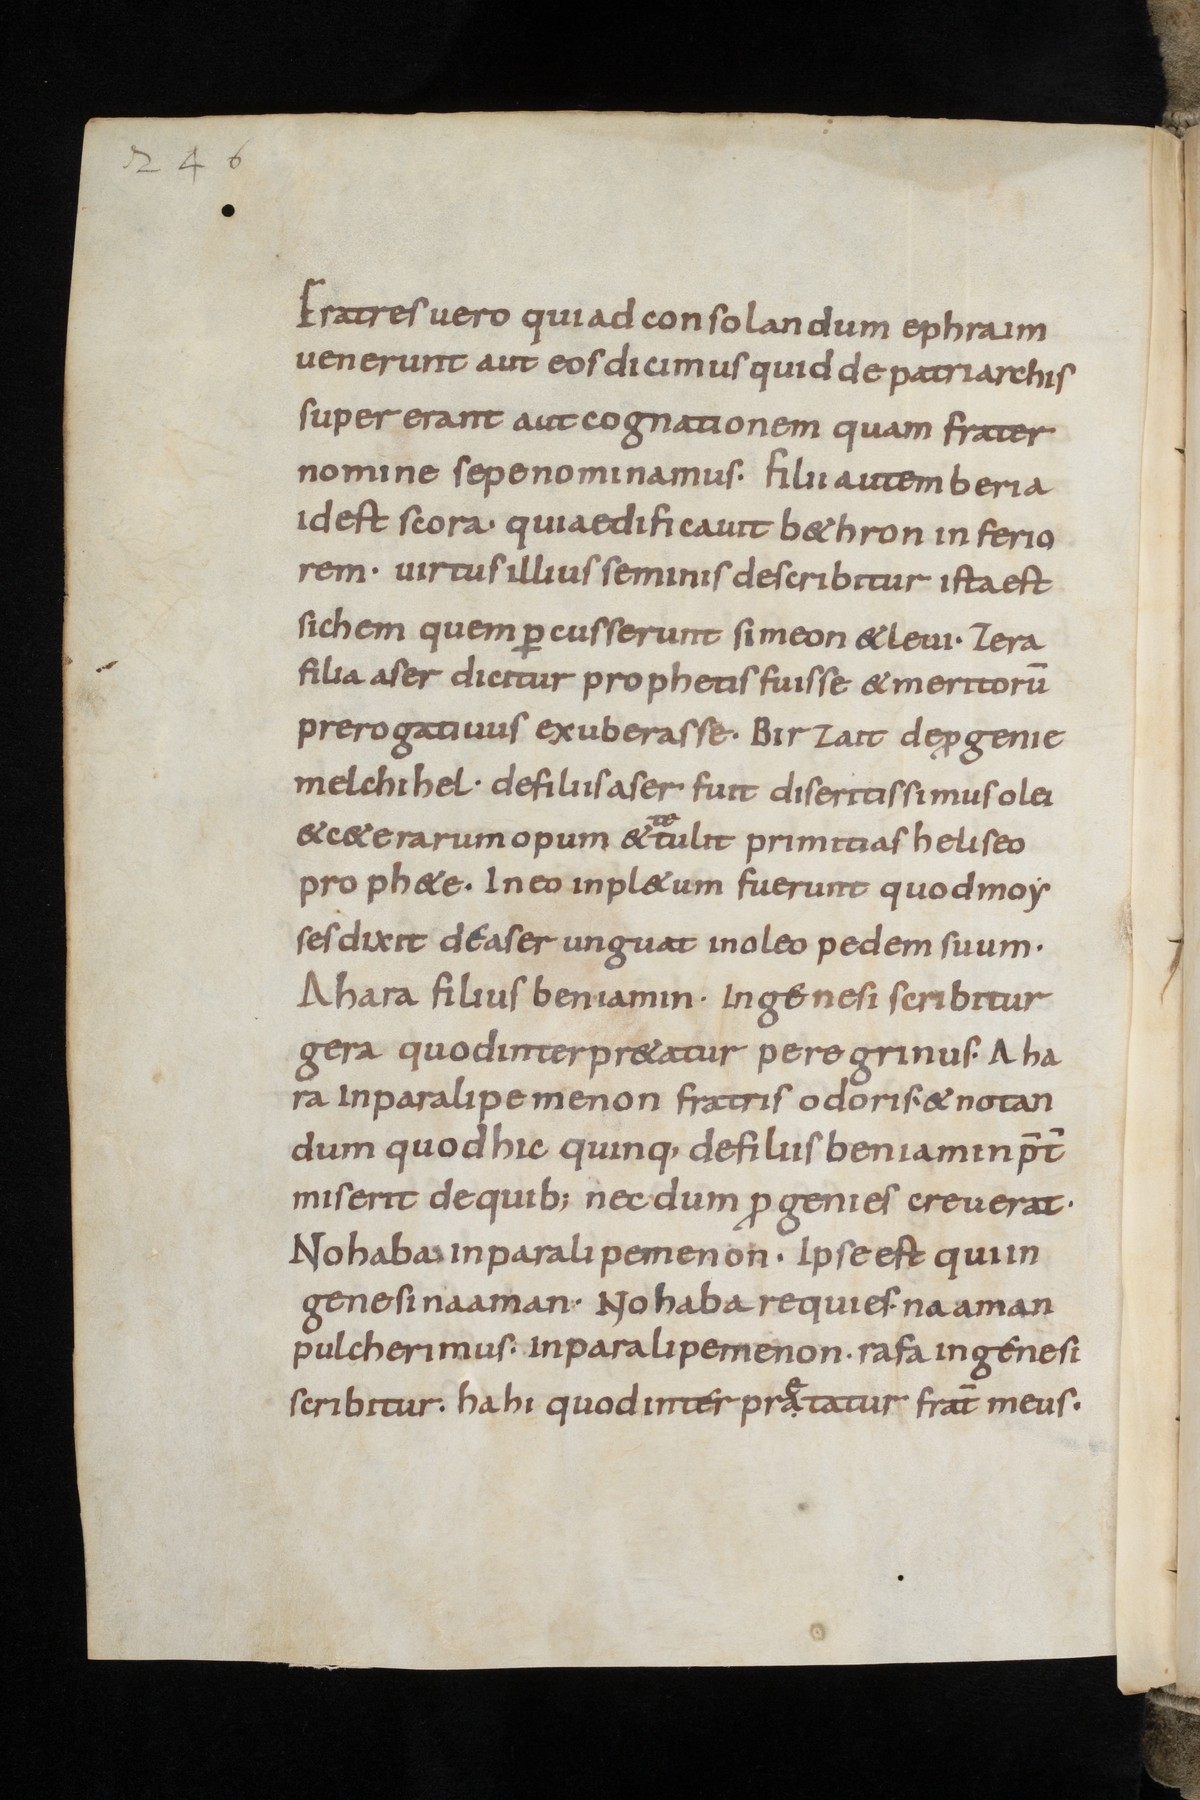 246
Fratres uero qui ad consolandum ephraim
uenerunt aut eos dicimus quid de patriarchis
super erant aut cognationem quam frater
nomine sepe nominamus. filii autem beria
id est scora. qui aedificauit b&hron inferio
rem. uirtus illius seminis describitur ista est
sichem quem ꝑcusserunt simeon & leui. Zera
filia aser dicitur prophetis fuisse & meritorū
prerogatiuus exuberasse. Bir zait de ꝓgenie
melchihel. de filiis aser fuit disertissimus olei
& c&erarum opum & tetulit primitias heliseo
proph&e. In eo inpl&um fuerunt quod moy
ses dixit de aser unguat in oleo pedem suum.
Ahara filius beniamin. In genesi scribitur
gera quod interpr&atur peregrinus. Aha
ra In paralipemenon fratris odoris. & notan
dum quod hic quinq; de filiis beniamin p̄t̄
miserit de quib; nec dum ꝓgenies creuerat.
Nohaba in paralipemenon. Ipse est qui in
genesi naaman. Nohaba requies. naaman
pulcherimus. In paralipemenon. rafa in genesi
scribitur. hahi quod inter prętatur frat̄ meus.